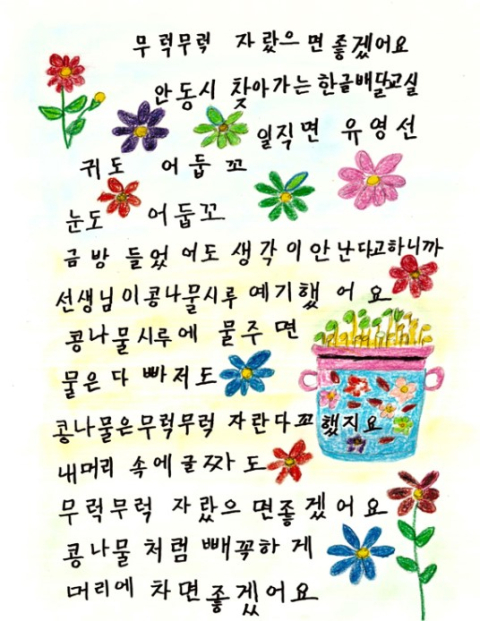 무럭무럭 자랐으면좋겠어요
안동시 찾아가는한글배달교실
일직면 유영선
귀도 어둡꼬
눈도 어둡꼬
금방 들었어도 생각이안난다고하니까
선생님이콩나물시루 예기했어요
콩나물시루에 물주면
물은다 빠저도
콩나물은무럭무럭 자란다꼬했지요
내머리 속에글짜도
무럭무럭 자랐으면좋겠어요
콩나물처럼 빼꼭하게
머리에 차면좋겠어요